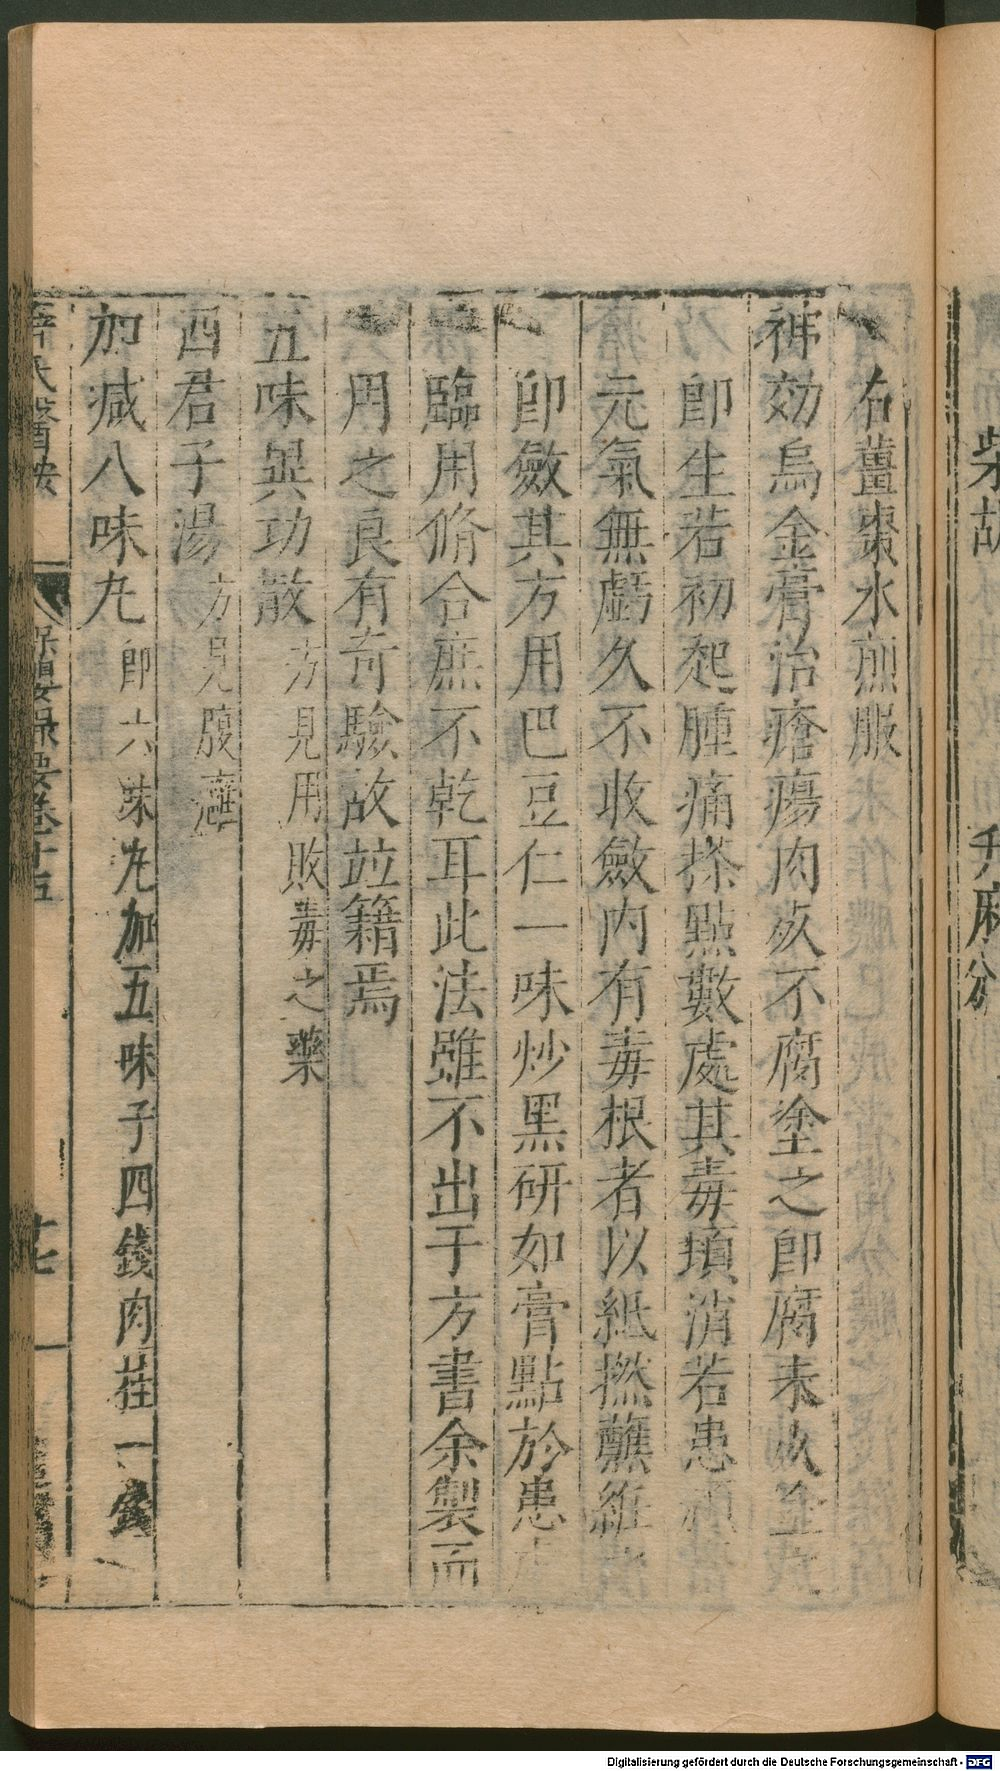 柴胡
升麻分
右薑棗水煎服
神効烏金膏治瘡瘍肉死不腐塗之即腐未死塗之
即生若初起腫痛搽點數處其毒頓消若患頑瘡
元氣無虧久不收斂内有毒根者以紙撚蘸紝
即斂其方用巴豆仁一味炒黑研如膏點於患
臨用脩合庶不乾耳此法雖不出于方書余製而
用之良有竒驗故竝籍焉
五味異功散方見用敗毒之藥
四君子湯方見腹癰
加减八味丸即六味丸加五味子四錢肉桂一錢
薛氏醫按 保嬰撮要卷十五
Digitalisierung gefördert durch die Deutsche Forschungsgemeinschaft - DFG